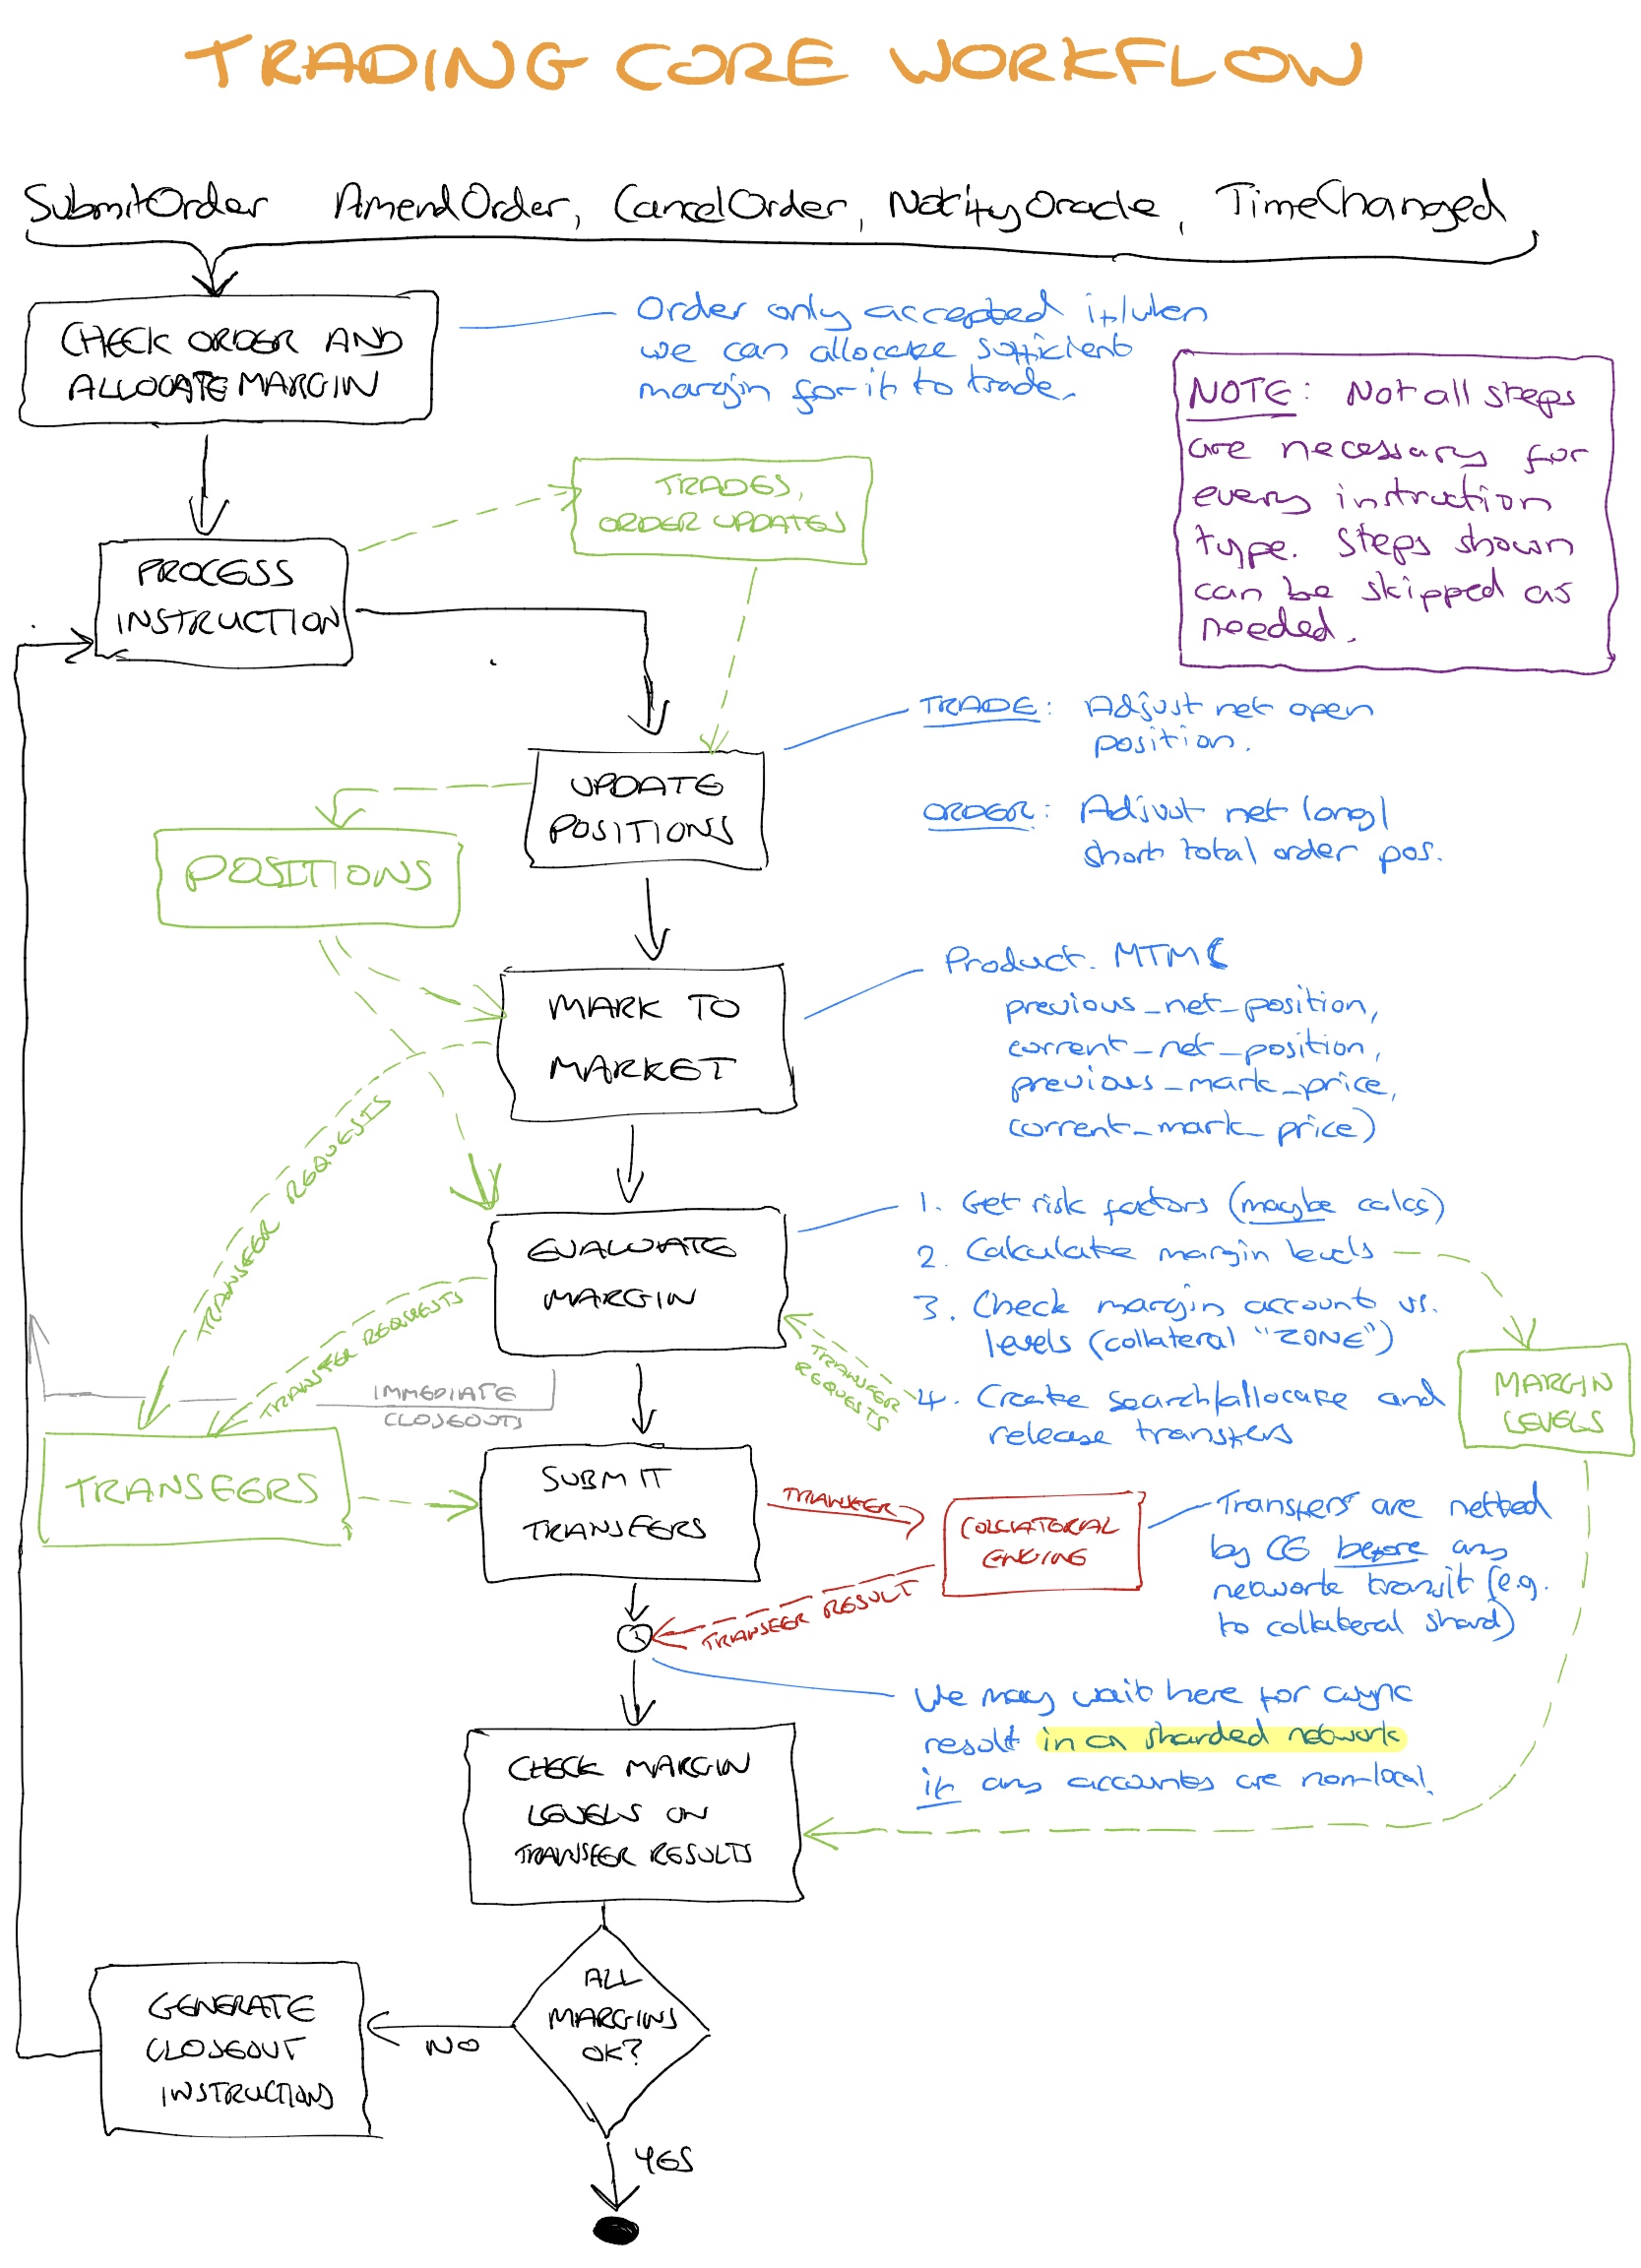 TRADING CORE WORKFLOW
SubmitOrder AmendOrder, CancelOrder, NotifyOracle, TimeChanged
CHECK ORDER AND
ALLOCATE MARGIN
Order only accepted if/when
we can allocate sufficient
margin for it to trade.
NOTE: Not all steps
are necessary for
every instruction
type. Steps shown
can be skipped as
needed.
TRADES,
ORDER UPDATES
PROCESS
INSTRUCTION
TRADE: Adjust net open
position.
UPDATE
POSITIONS
ORDER: Adjust net long/
short total order pos.
POSITIONS
MARK TO
MARKET
Product. MTM(
previous_net_position,
current_net_position,
previous_mark_price,
current_mark_price)
TRANSFER REQUESTS
EVALUATE
MARGIN
1. Get risk factors (maybe calcs)
2. Calculate margin levels
3. Check margin account vs.
levels (collateral "ZONE")
4. Create search/allocate and
release transfers
TRANSFER REQUESTS
TRANSFER
REQUESTS
MARGIN
LEVELS
IMMEDIATE
CLOSEOUTS
TRANSFERS
SUBMIT
TRANSFERS
TRANSFER
COLLATORIAL
ENGINE
TRANSFER RESULT
Transfers are netted
by CE before any
network transit (e.g.
to collateral shard)
We may wait here for async
result in a sharded network
if any accounts are non-local.
CHECK MARGIN
LEVELS ON
TRANSFER RESULTS
ALL
MARGINS
OK?
NO
GENERATE
CLOSEOUT
INSTRUCTIONS
YES